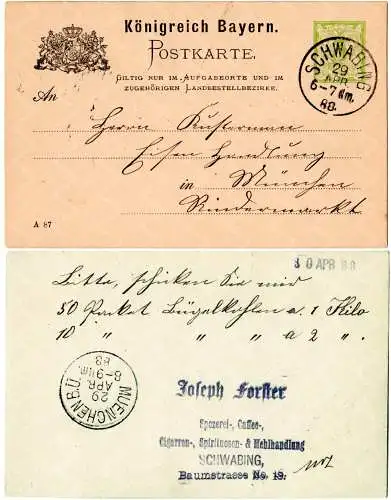 Königreich Bayern.
POSTKARTE.
GILTIG NUR IM AUFGABEORTE UND IM
ZUGEHÖRIGEN LANDBESTELLBEZIRKE.
SCHWABING
29
APR
6-7 Nm.
88.
An
Herrn Kustermann
Eisen Handlung
in München
Rindermarkt
A 87
30 APR 88
Bitte, schicken Sie mir
50 Paket Bügelkohlen a. 1 Kilo
10 " " a 2 "
MUENCHEN B.Ü.
29
APR.
8-9 Nm.
88
Joseph Forster
Spezerei-, Caffee-,
Cigarren-, Spirituosen- & Mehlhandlung
SCHWABING,
Baumstrasse No 19.